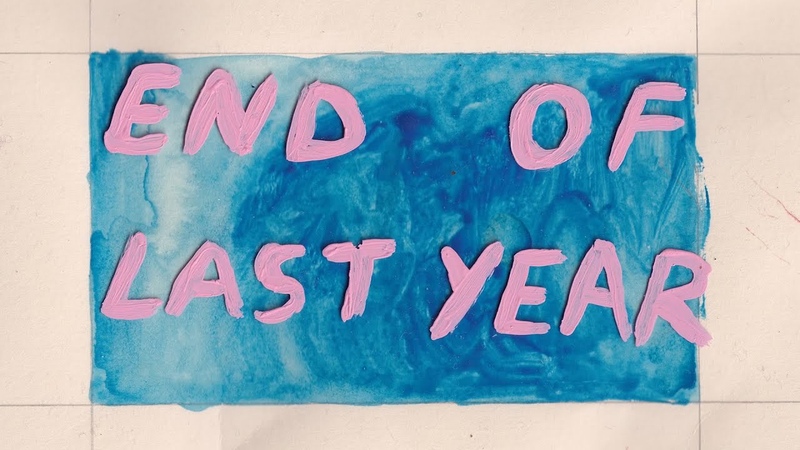 END OF
LAST YEAR